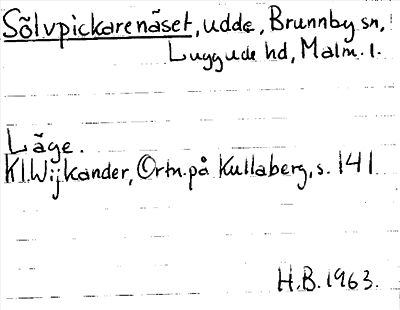 Sölvpickarenäset, udde, Brunnby sn,
Luggude hd, Malm. l.
Läge.
Kl. Wijkander, Ortn. på Kullaberg, s. 141
H.B. 1963.